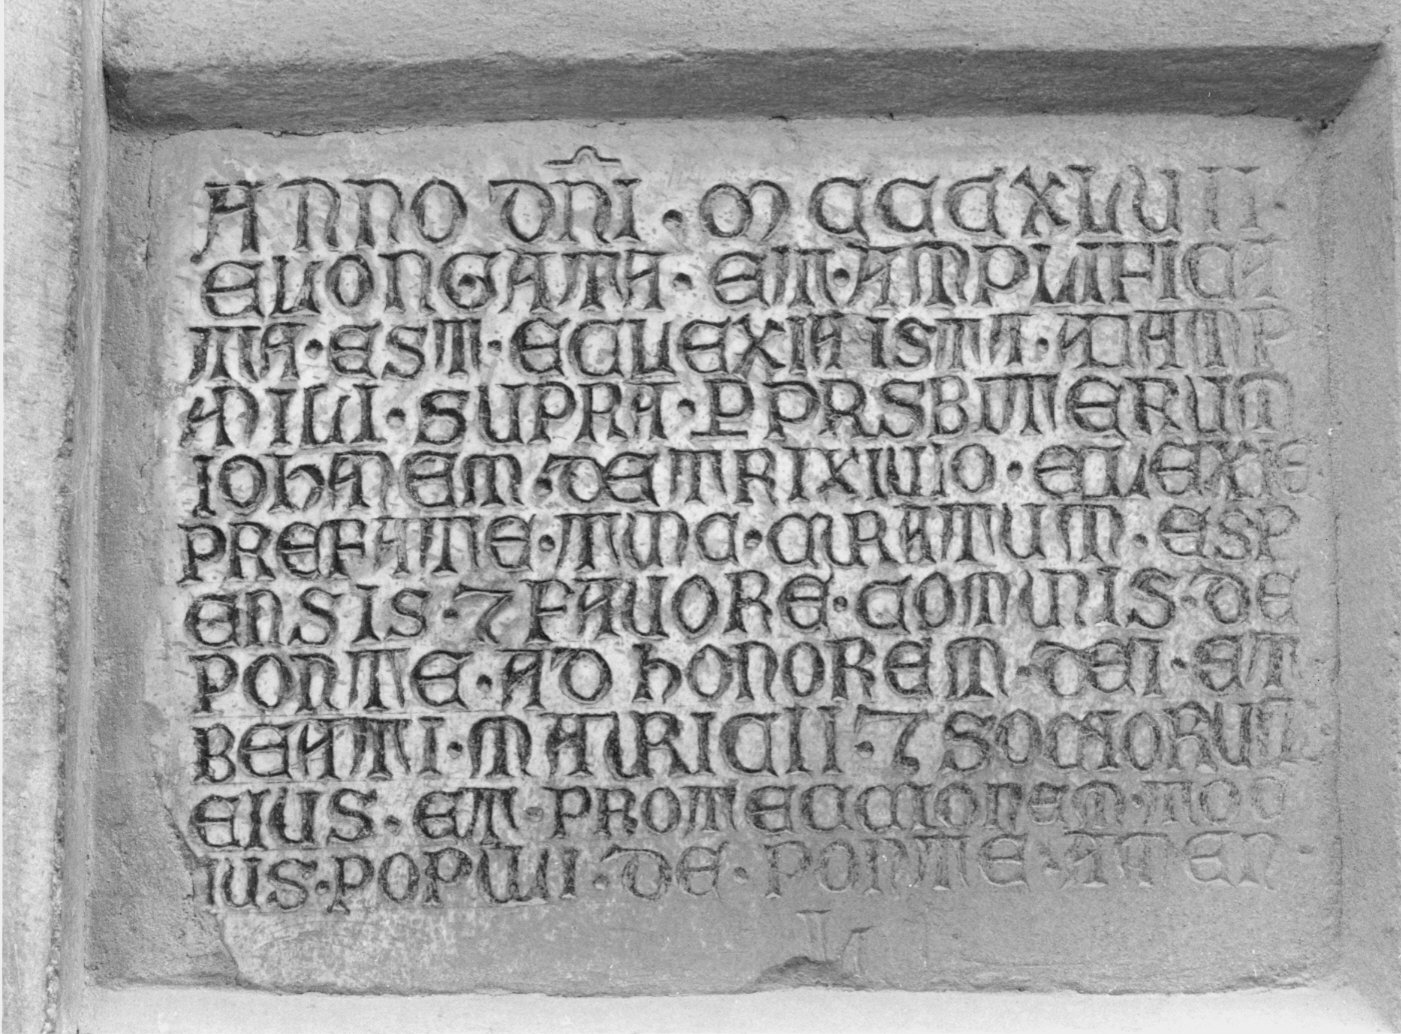 ANNO DNI · M CCCXLVII ·
ELONGATA · ET · AMPLIFICA
TA · EST · ECCLEXIA ISTA · A CAMP
ANILI · SUPRA · P PRSBITERUM
IOhANEM · DEMTRIXIUIO · ELEVEXE
PREFATE · TUNC · CURATUM · ESP
ENSIS · 7 FAUORE · COMUNIS · DE
PONTE · AD hONOREM · DEI · ET
BEATI · MAURICII · 7 SOCIORUM
EIUS · ET PROTECCIONEM · TOCI
US · POPULI · DE · PONTE · ATEN ·